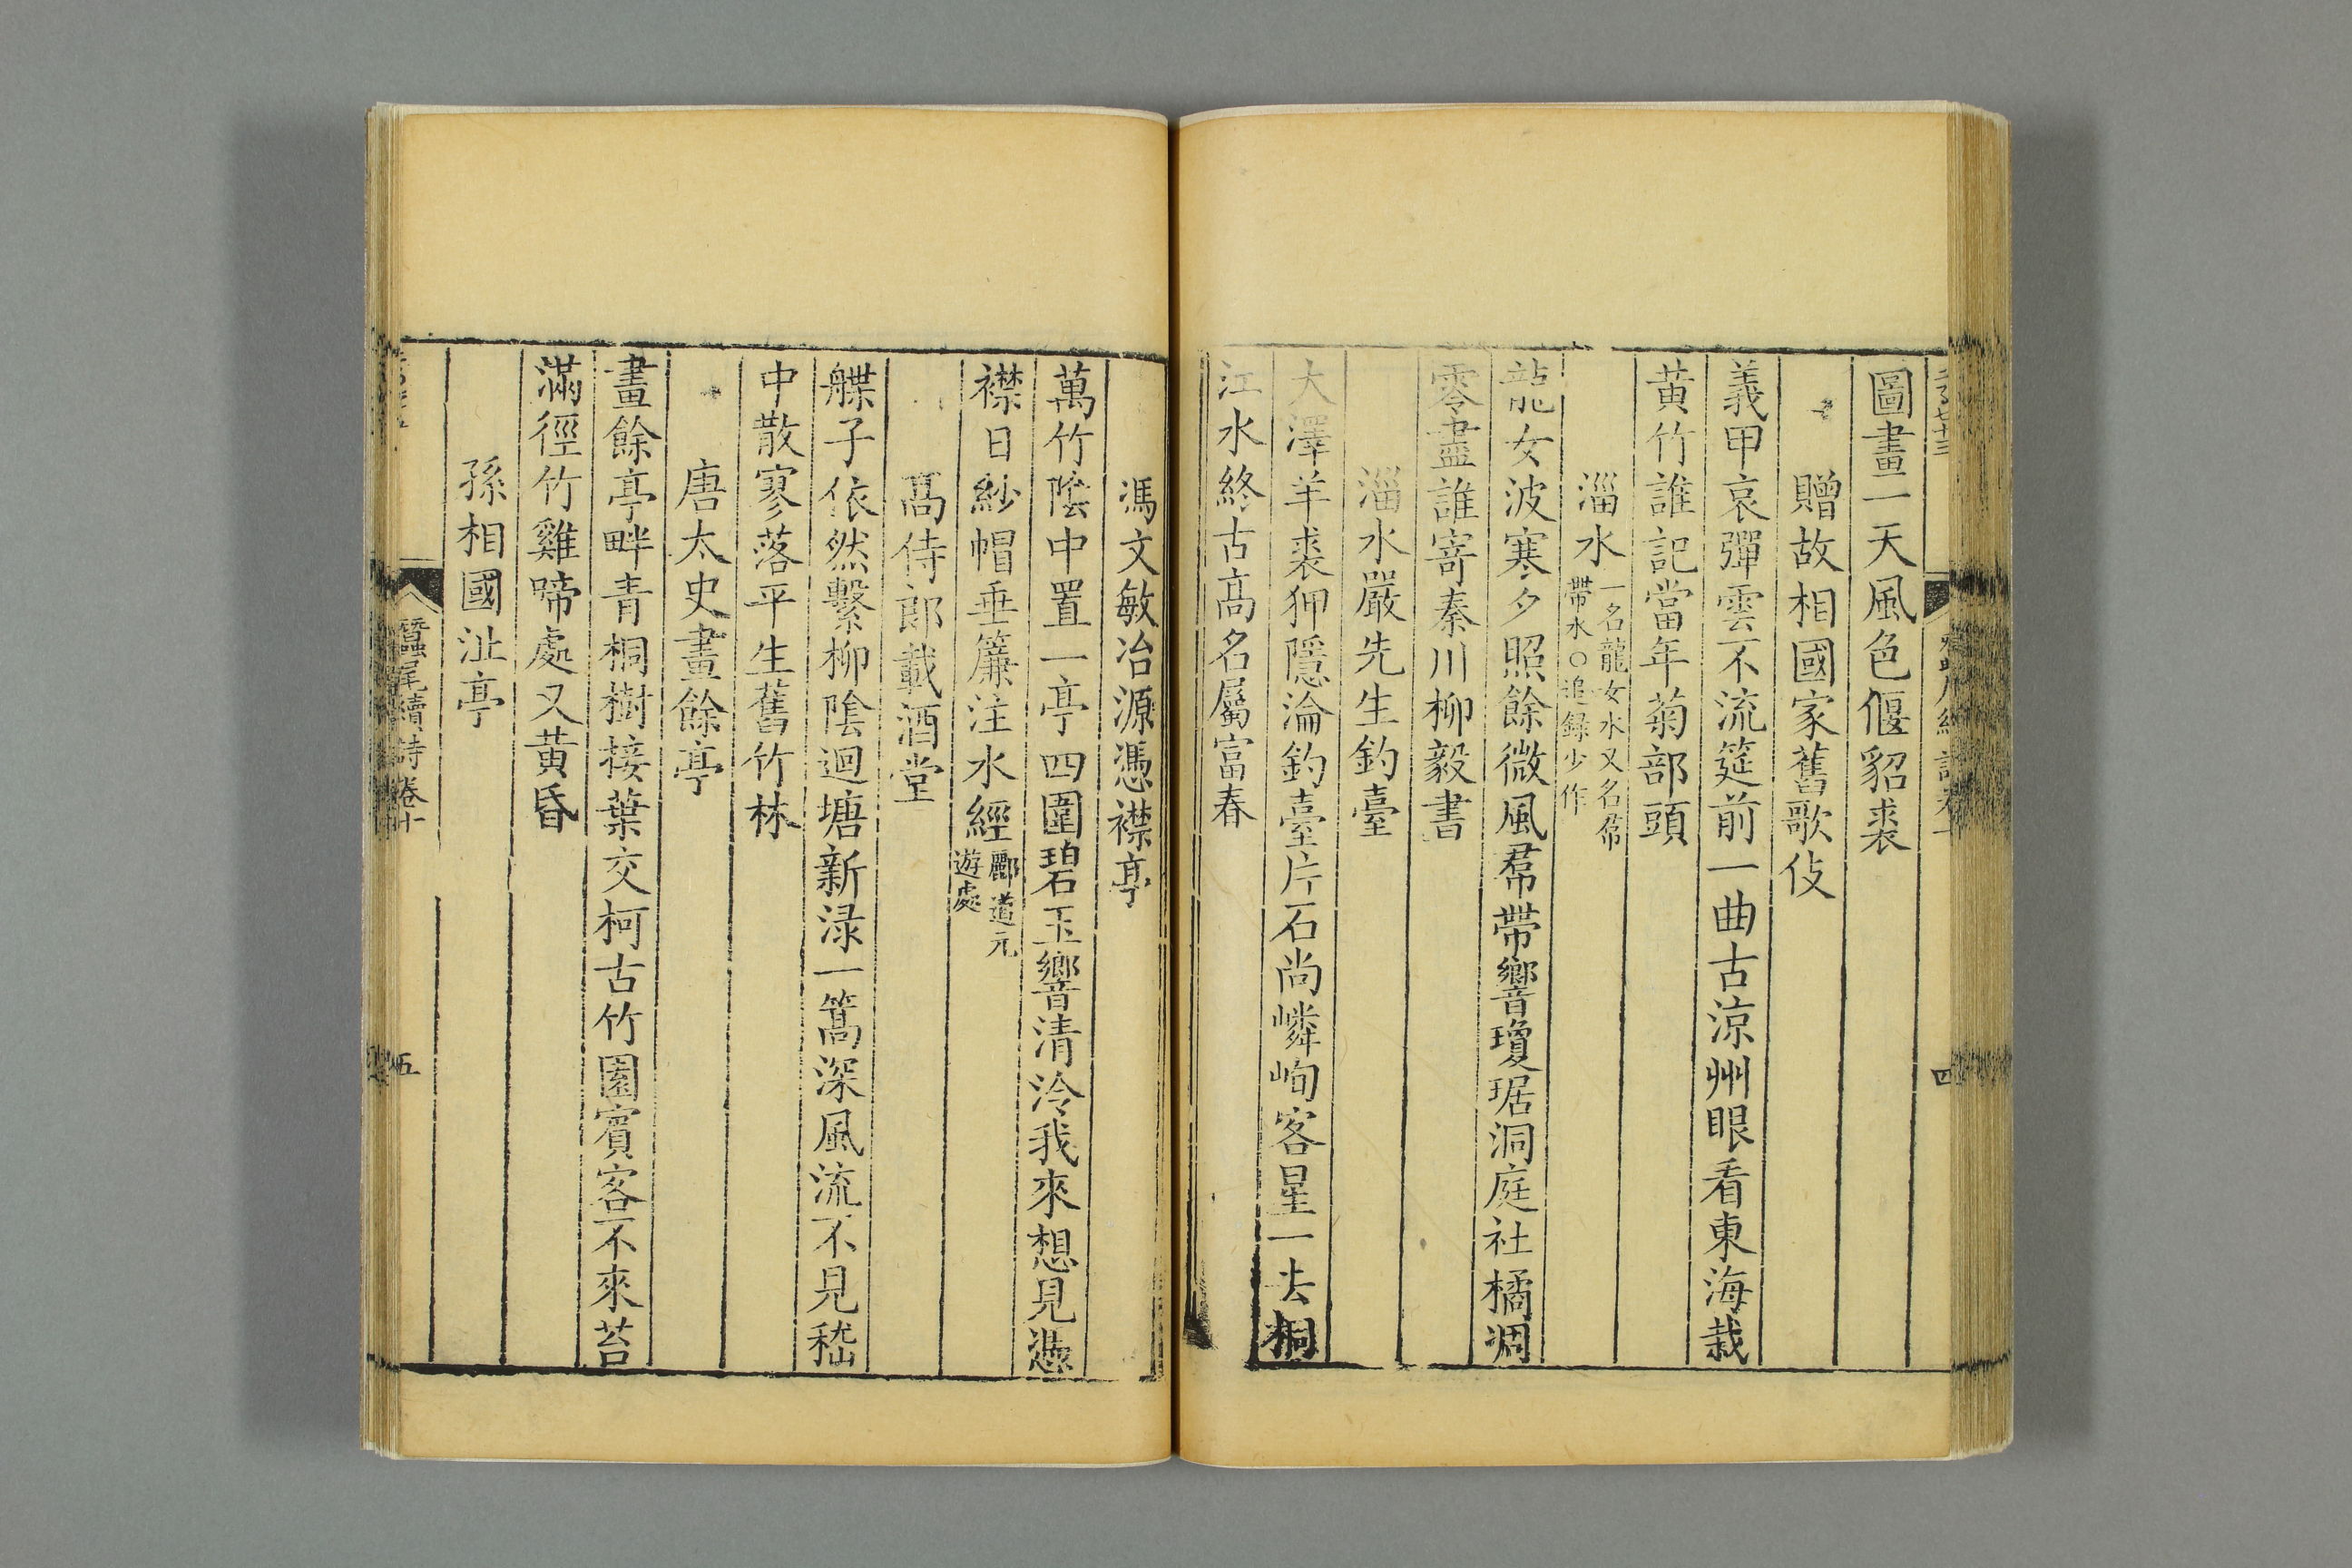 圖畫一天風色偃貂裘
贈故相國家舊歌伎
義甲哀彈雲不流筵前一曲古涼州眼看東海栽
黃竹誰記當年菊部頭
淄水
一名龍女水又名帬
帶水○追録少作
龍女波寒夕照餘微風帬帶響瓊琚洞庭社橘凋
零盡誰寄秦川柳毅書
淄水嚴先生釣臺
大澤羊裘狎隱淪釣臺片石尚嶙峋客星一去桐
江水終古高名屬富春
四
馮文敏冶源憑襟亭
萬竹陰中置一亭四圍碧玉響清泠我來想見憑
襟日紗帽垂簾注水經
酈道元
遊處
髙侍郎載酒堂
艓子依然繫柳陰迴塘新渌一篙深風流不見嵇
中散寥落平生舊竹林
唐太史畫餘亭
畫餘亭畔青桐樹接葉交柯古竹園賓客不來苔
滿徑竹雞啼處又黃昏
孫相國沚亭
蠶尾續詩卷十
五